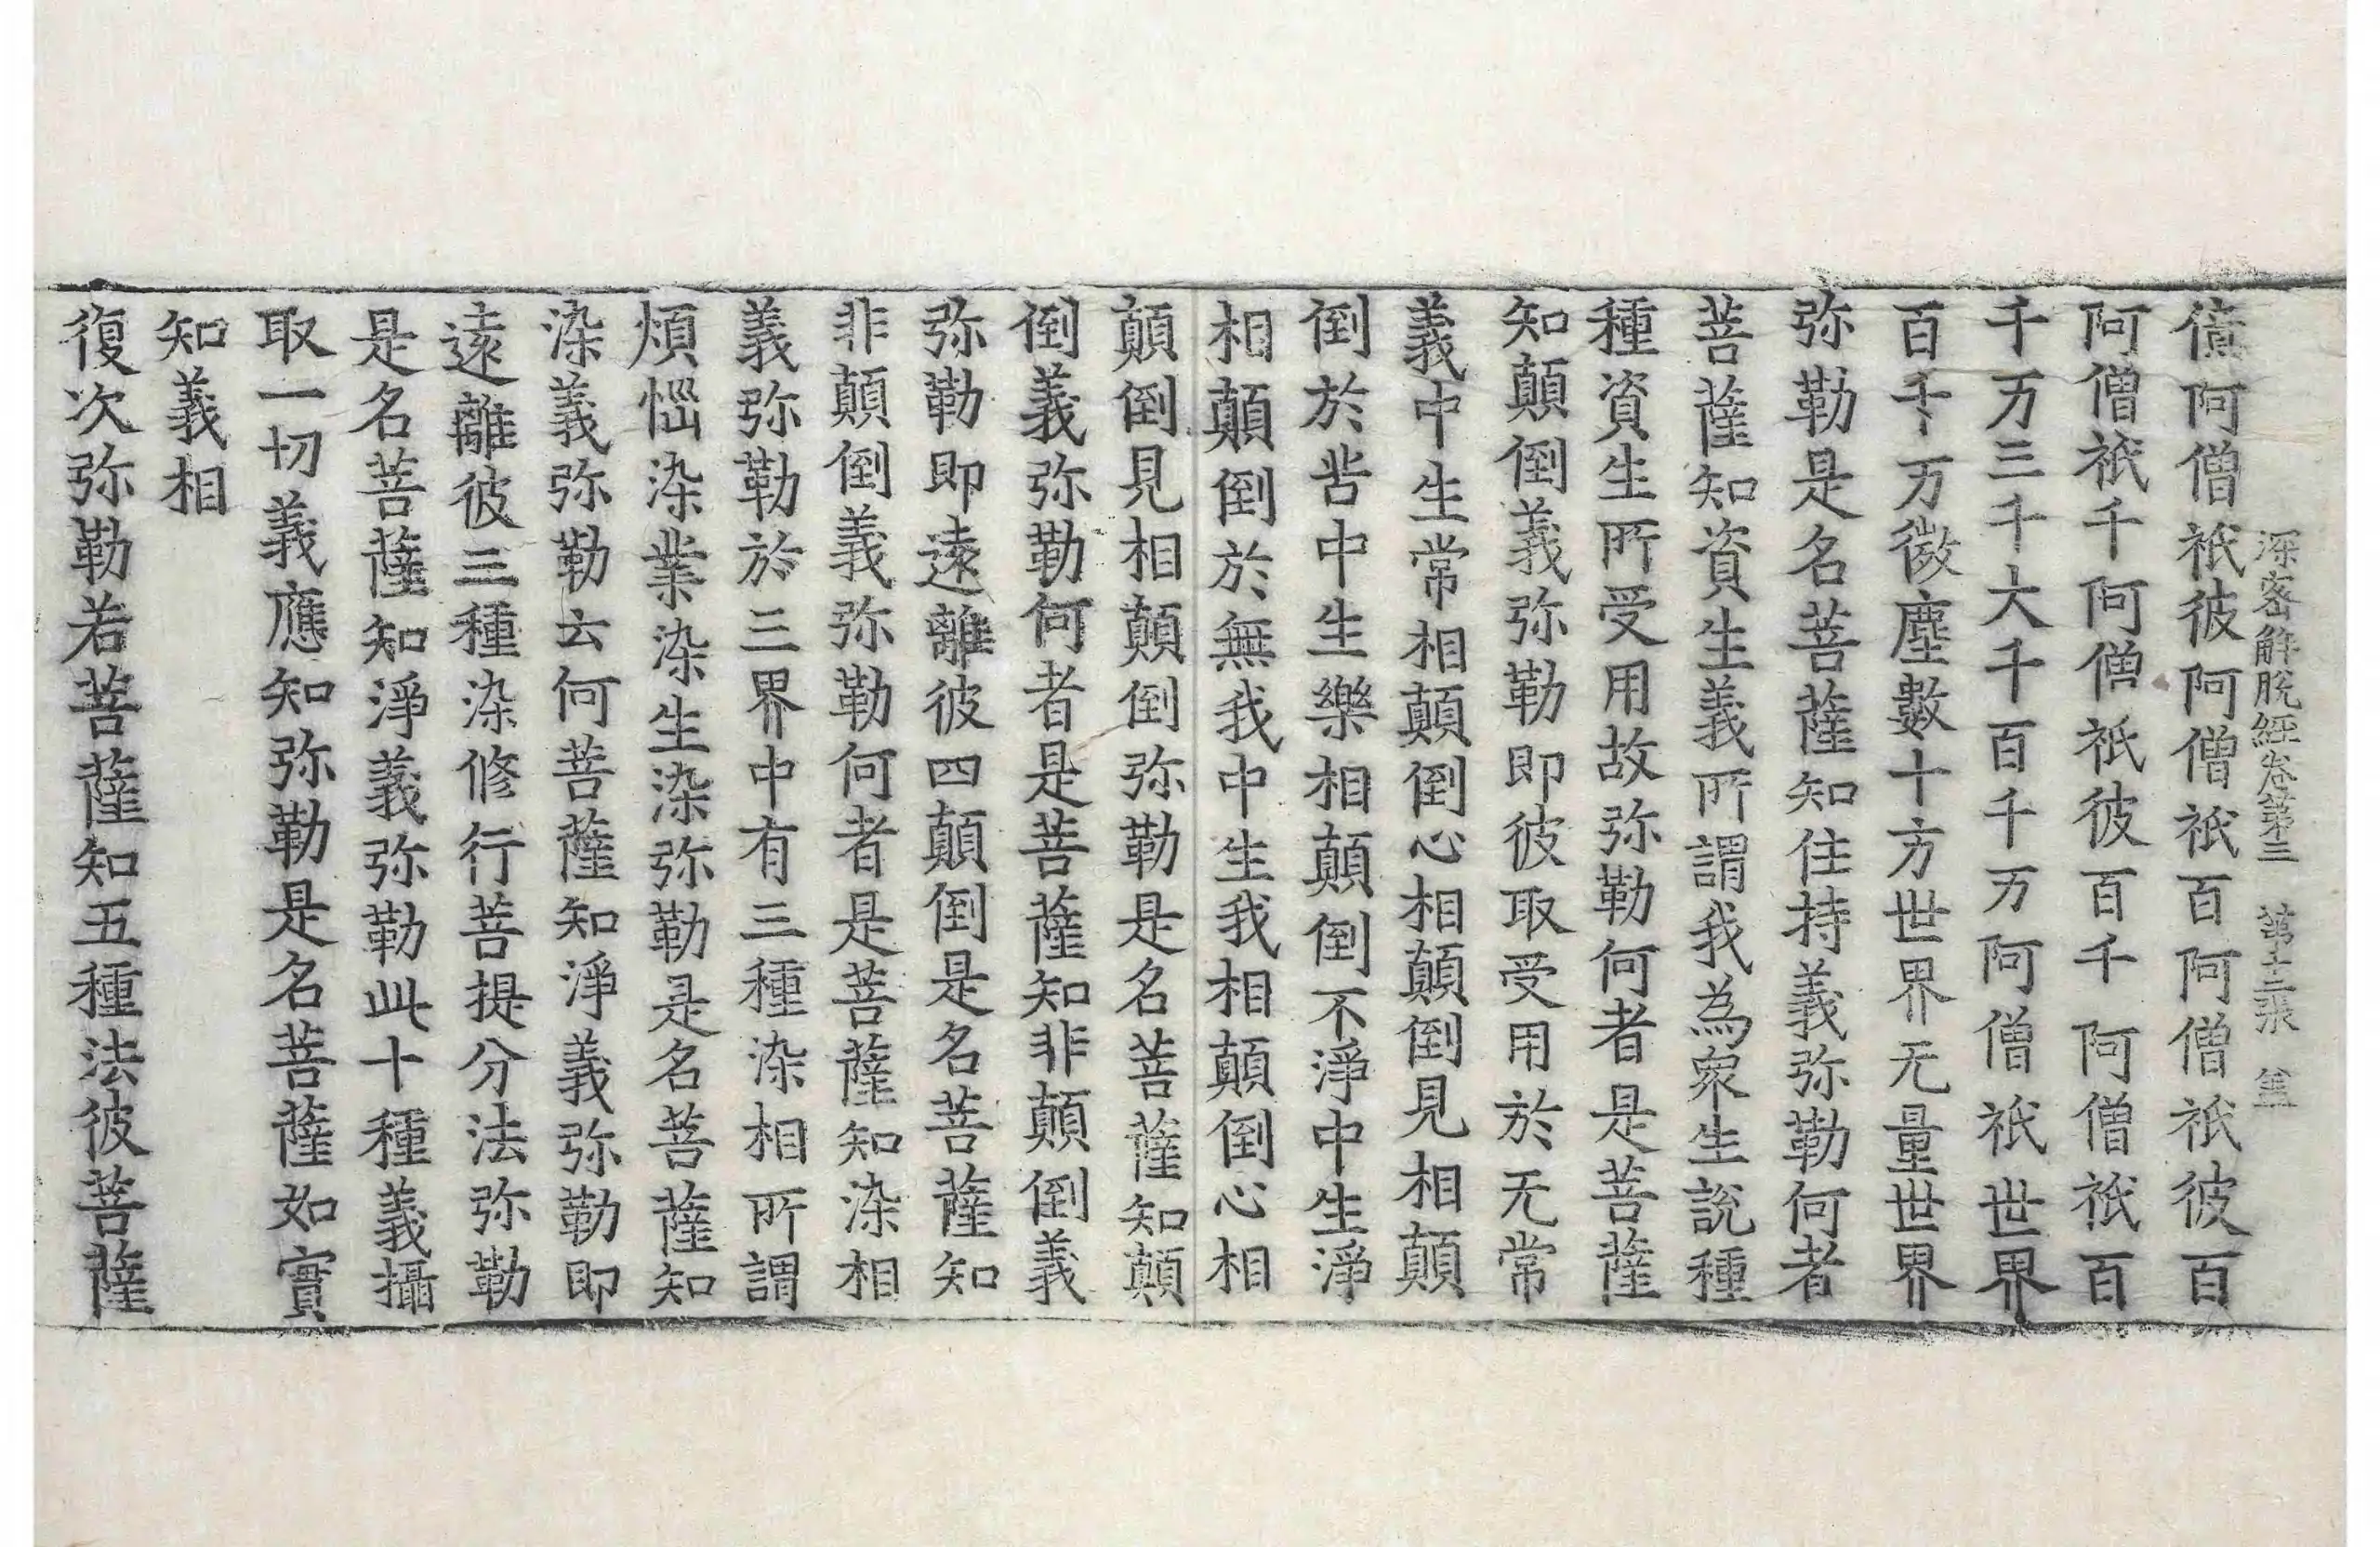 深密解脫經卷第三 第十三張 𡘙
億阿僧祇彼阿僧祇百阿僧祇彼百
阿僧祇千阿僧祇彼百千阿僧祇百
千万三千大千百千万阿僧祇世界
百千万微塵數十方世界无量世界
弥勒是名菩薩知住持義弥勒何者
菩薩知資生義所謂我為衆生說種
種資生所受用故弥勒何者是菩薩
知顛倒義弥勒即彼取受用於无常
義中生常相顛倒心相顛倒見相顛
倒於苦中生樂相顛倒不淨中生淨
相顛倒於無我中生我相顛倒心相
顛倒見相顛倒弥勒是名菩薩知顛
倒義弥勒何者是菩薩知非顛倒義
弥勒即遠離彼四顛倒是名菩薩知
非顛倒義弥勒何者是菩薩知染相
義弥勒於三界中有三種染相所謂
煩惱染業染生染弥勒是名菩薩知
染義弥勒云何菩薩知淨義弥勒即
遠離彼三種染修行菩提分法弥勒
是名菩薩知淨義弥勒此十種義攝
取一切義應知弥勒是名菩薩如實
知義相
復次弥勒若菩薩知五種法彼菩薩